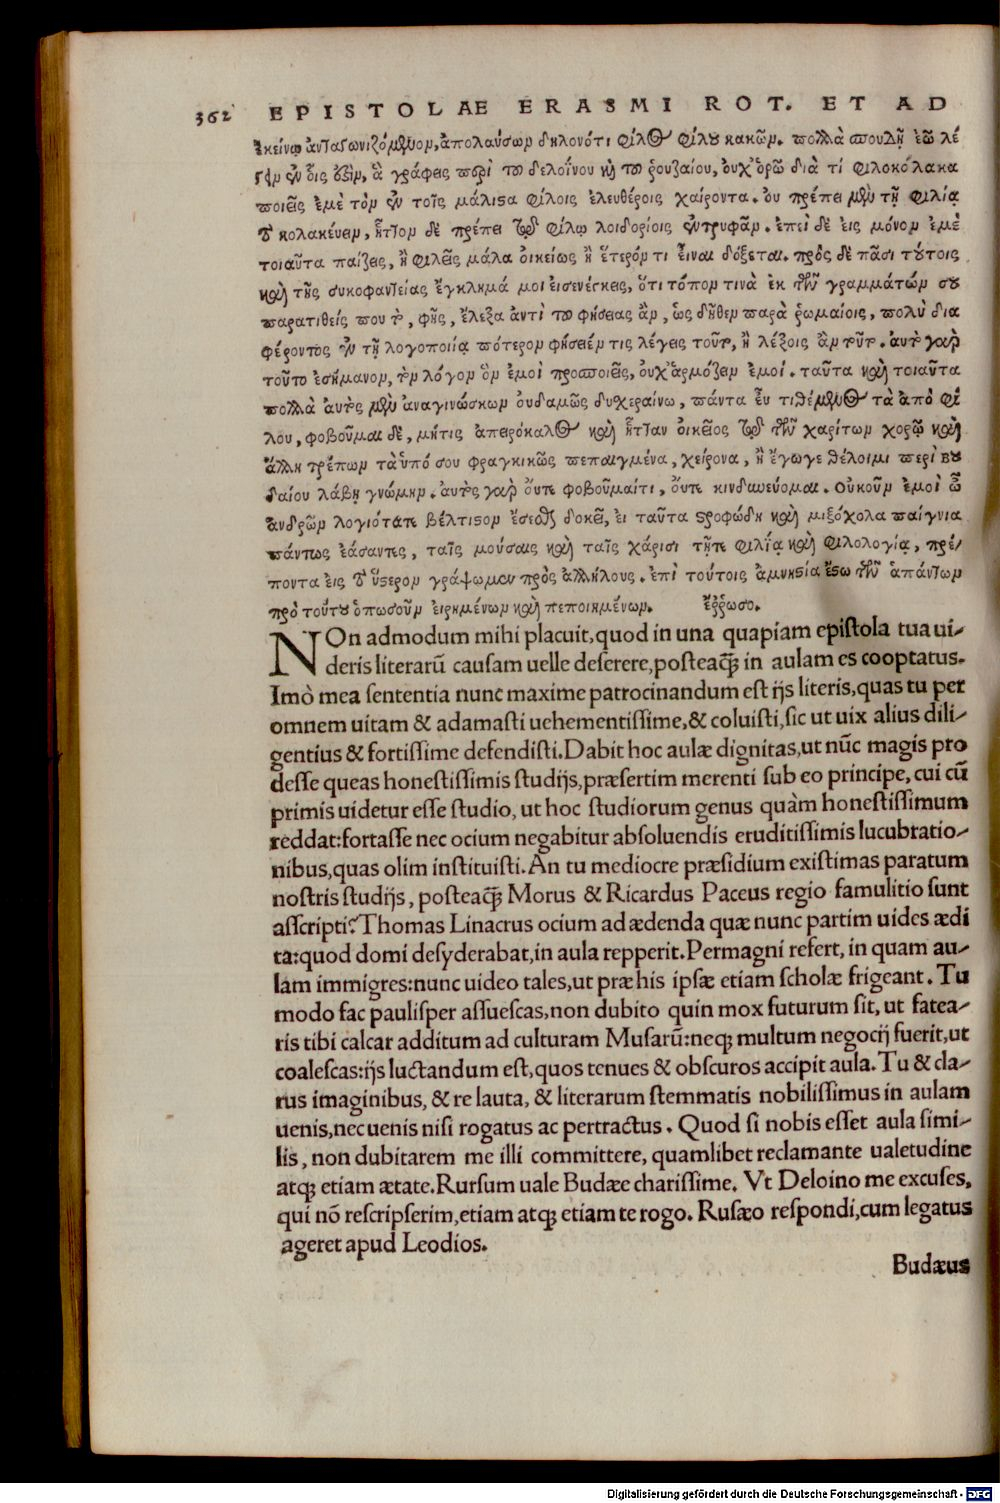 362 EPISTOLAE ERASMI ROT. ET AD
ἐκείνῳ ἀνταγωνιζόμενον, ἀπολαύσων δηλονότι φίλος φίλου κακῶν. πολλὰ σπουδῇ ἐῶ λέ
γειν ἐν οἷς ἃ γράφεις περὶ τοῦ δελοΐνου καὶ τοῦ ῥουζαίου, οὐχ ὁρῶ διὰ τί φιλοκόλακα
ποιεῖς ἐμὲ τὸν ἐν τοῖς μάλιστα φίλοις ἐλευθέροις χαίροντα. οὐ πρέπει μὲν τῇ φιλίᾳ
τὸ κολακεύειν, ἧττον δὲ πρέπει τῷ φίλῳ λοιδορίοις ἐντρυφᾶν. ἐπεὶ δὲ εἰς μόνον ἐμὲ
τοιαῦτα παίζεις, ἢ φιλεῖς μάλα οἰκείως ἢ ἕτερόν τι εἶναι δόξεται. πρὸς δὲ πᾶσι τούτοις
καὶ τῆς συκοφαντείας ἔγκλημά μοι εἰσενέγκεις, ὅτι τόπον τινὰ ἐκ τῶν γραμμάτων σου
παρατιθείς που, φῂς, ἔλεξα ἀντὶ τοῦ φήσειας ἂν, ὡς δῆθεν παρὰ ῥωμαίοις, πολὺ δια
φέροντος ἐν τῇ λογοποιίᾳ πότερον φήσειέν τις λέγεις τοῦτο, ἢ λέξοις ἂν τοῦτο. αὐτὸ γὰρ
τοῦτο ἐσήμανον, τὸν λόγον ὃν ἐμοὶ προσποιεῖς, οὐχ ἁρμόζειν ἐμοί. ταῦτα καὶ τοιαῦτα
πολλὰ αὐτὸς μὲν ἀναγινώσκων οὐδαμῶς δυχεραίνω, πάντα εὖ τιθέμενος τὰ ἀπὸ φί
λου, φοβοῦμαι δὲ, μήτις ἀπειρόκαλος καὶ ἧτταν οἰκεῖος τῷ τῶν χαρίτων χορῷ καὶ
ἄλλη τρέπων τὰ ὑπό σου φραγκικῶς πεπαιγμένα, χείρονα, ἢ ἔγωγε θέλοιμι περὶ βου
δαίου λάβῃ γνώμην. αὐτὸς γὰρ οὔτε φοβοῦμαί τι, οὔτε κινδυνεύομαι. Οὐκοῦν ἐμοὶ ὦ
ἀνδρῶν λογιότατε βέλτιστον ἔσεσθαι δοκεῖ, εἰ ταῦτα στροφώδη καὶ μιξόχολα παίγνια
πάντως ἐάσαντες, ταῖς μούσαις καὶ ταῖς χάρισι τῇτε φιλίᾳ καὶ φιλολογίᾳ, πρέ-
ποντα εἰς τὸ ὕστερον γράψωμεν πρὸς ἀλλήλους. ἐπὶ τούτοις ἀμνηστία ἔστω τῶν ἁπάντων
πρὸ τούτου ὁπωσοῦν εἰρημένων καὶ πεποιημένων. ἔῤῥωσο.
NOn admodum mihi placuit, quod in una quapiam epistola tua ui-
deris literarũ causam uelle deserere, posteaq̃ in aulam es cooptatus.
Imò mea sententia nunc maxime patrocinandum est ijs literis, quas tu per
omnem uitam & adamasti uehementissime, & coluisti, sic ut uix alius dili-
gentius & fortissime defendisti. Dabit hoc aulæ dignitas, ut nũc magis pro
desse queas honestissimis studijs, præsertim merenti sub eo principe, cui cũ
primis uidetur esse studio, ut hoc studiorum genus quàm honestissimum
reddat: fortasse nec ocium negabitur absoluendis eruditissimis lucubratio-
nibus, quas olim instituisti. An tu mediocre præsidium existimas paratum
nostris studijs, posteaq̃ Morus & Ricardus Paceus regio famulitio sunt
asscripti? Thomas Linacrus ocium ad ædenda quæ nunc partim uides ædi
ta: quod domi desyderabat, in aula repperit. Permagni refert, in quam au-
lam immigres: nunc uideo tales, ut præ his ipsæ etiam scholæ frigeant. Tu
modo fac paulisper assuescas, non dubito quin mox futurum sit, ut fatea-
ris tibi calcar additum ad culturam Musarũ: neq; multum negocij fuerit, ut
coalescas: ijs luctandum est, quos tenues & obscuros accipit aula. Tu & cla-
rus imaginibus, & re lauta, & literarum stemmatis nobilissimus in aulam
uenis, nec uenis nisi rogatus ac pertractus. Quod si nobis esset aula simi-
lis, non dubitarem me illi committere, quamlibet reclamante ualetudine
atq; etiam ætate. Rursum uale Budæe charissime. Vt Deloino me excuses,
qui nõ rescripserim, etiam atq; etiam te rogo. Rusæo respondi, cum legatus
ageret apud Leodios.
Budæus
Digitalisierung gefördert durch die Deutsche Forschungsgemeinschaft - DFG